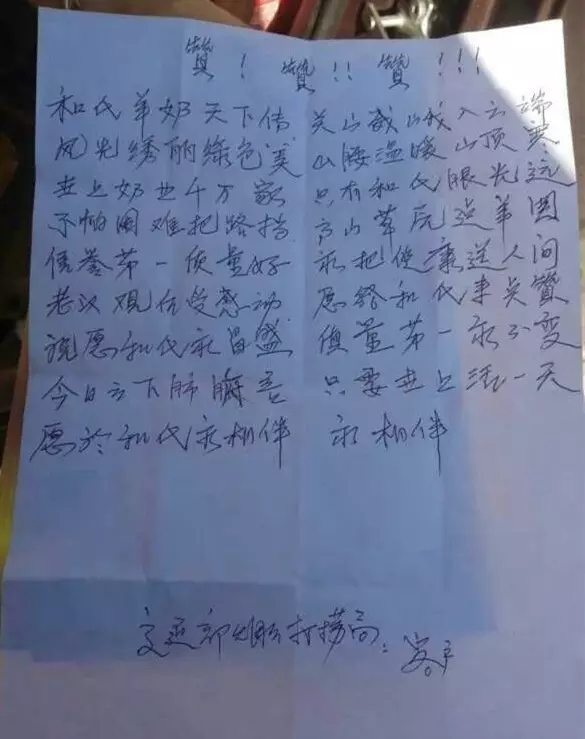 赞！ 赞！！ 赞！！！
和氏羊奶天下传 关山巍峨入云端
风光绣丽绿色美 山腰温暖山顶寒
世上奶业千万家 只有和氏眼光远
不怕困难把路指 高山草原造羊圈
信誉第一质量好 永把健康送人间
老汉观后受感动 愿给和氏来点赞
说愿和氏永昌盛 质量第一永不变
今日立下肺腑言 只要世上活一天
愿於和氏永相伴 永相伴
交通部 打捞局：